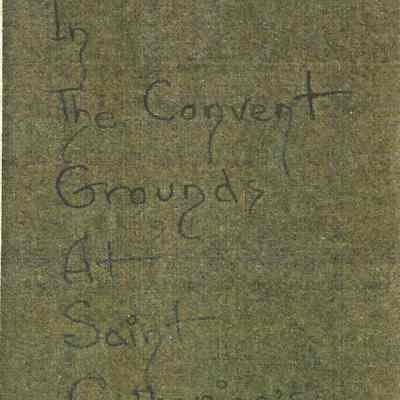 In
The Convent
Grounds
At
Saint
Catherine's